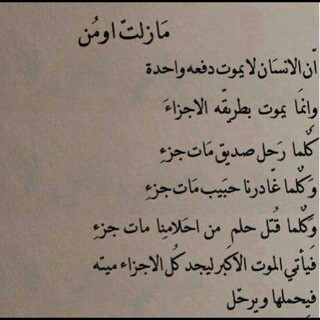 مَازلتّ اومُن
اّن الانسَان لايموت دفعه واحدة
وانمَا يموت بطريقّه الاجزاءَ
كٌلما رَحل صديق مَات جزءِ
وَكٌلما غّادرنا حبَيب مَات جزءِ
وَكٌلما قُتل حلم من احَلامِنا مات جزءِ
فيَأتي الموت الاكبر ليجد كُل الاجزاء ميته
فيِحملها ويرحّل